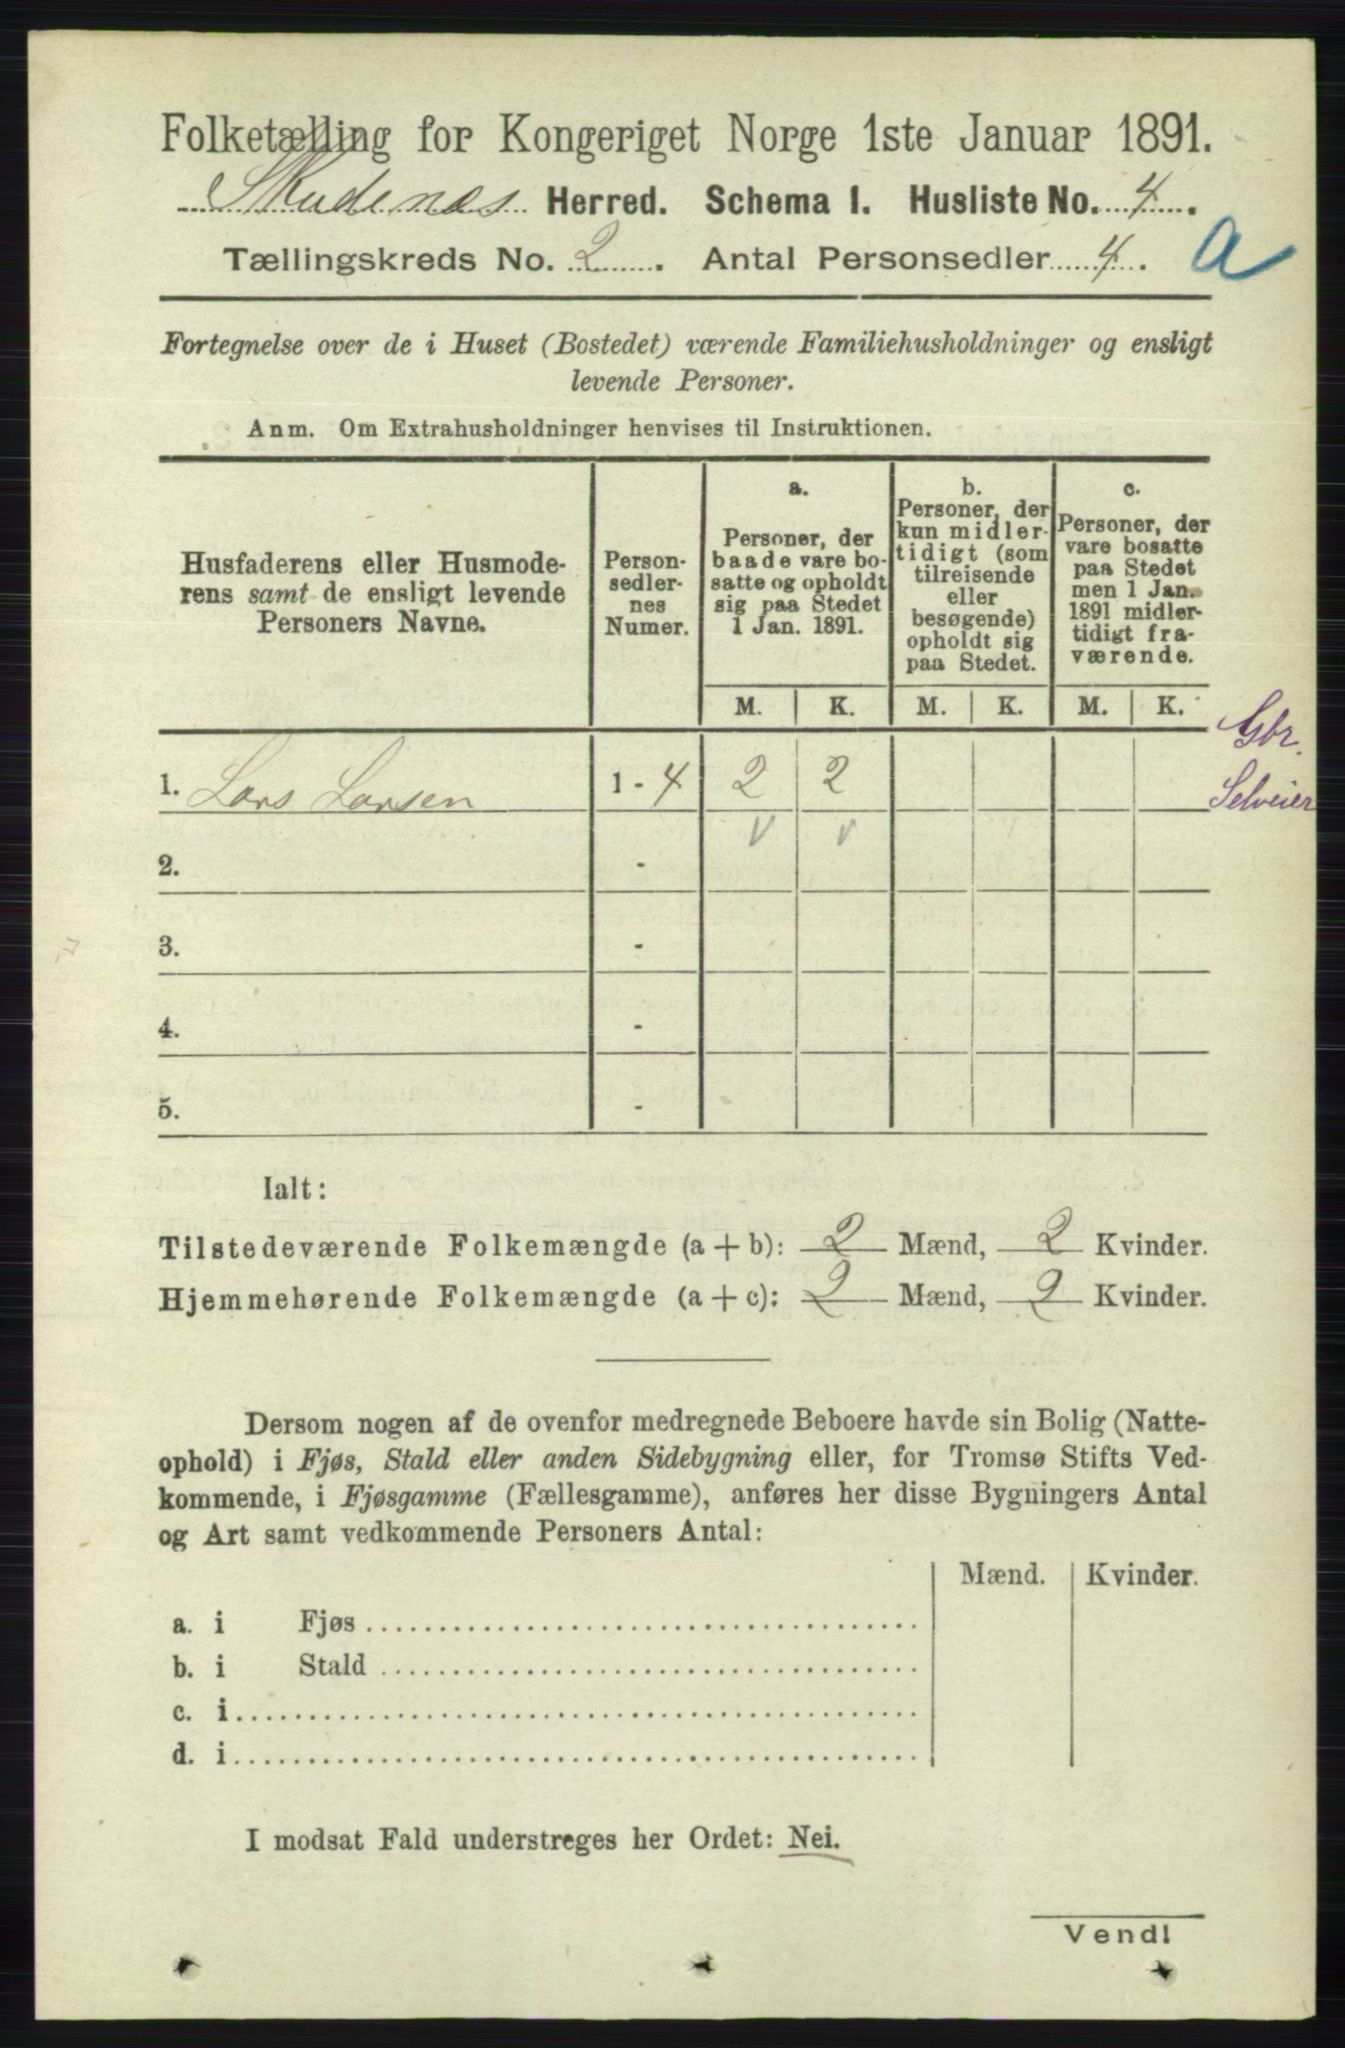 Folketælling for Kongeriget Norge 1ste Januar 1891.
Skudenæs Herred. Schema I. Husliste No. 4.
Tællingskreds No. 2. Antal Personsedler 4. a
Fortegnelse over de i Huset (Bostedet) værende Familiehusholdninger og ensligt
levende Personer.
Anm. Om Extrahusholdninger henvises til Instruktionen.
Husfaderens eller Husmode-
rens samt de ensligt levende
Personers Navne.
Person-
sedler-
nes
Numer.
a.
Personer, der
baade vare bo-
satte og opholdt
sig paa Stedet
1 Jan. 1891.
b.
Personer, der
kun midler-
tidigt (som
tilreisende
eller
besøgende)
opholdt sig
paa Stedet.
c.
Personer, der
vare bosatte
paa Stedet
men 1 Jan.
1891 midler-
tidigt fra-
værende.
M. K. M. K. M. K.
Gbr.
1. Lars Larsen 1 - 4 2 2 Selveier
v v
2. -
3. -
4. -
5. -
Ialt:
Tilstedeværende Folkemængde (a + b): 2 Mænd, 2 Kvinder.
Hjemmehørende Folkemængde (a + c): 2 Mænd, 2 Kvinder.
Dersom nogen af de ovenfor medregnede Beboere havde sin Bolig (Natte-
ophold) i Fjøs, Stald eller anden Sidebygning eller, for Tromsø Stifts Ved-
kommende, i Fjøsgamme (Fællesgamme), anføres her disse Bygningers Antal
og Art samt vedkommende Personers Antal:
Mænd. Kvinder.
a. i Fjøs
b. i Stald
c. i
d. i
I modsat Fald understreges her Ordet: Nei.
Vend!